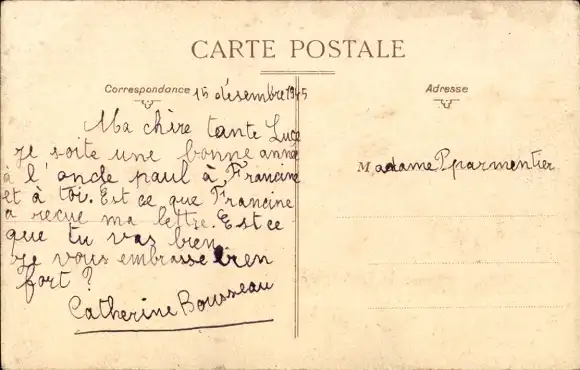 CARTE POSTALE
Correspondance
15 désembre 1945
Ma chire tante Luce
je soite une bonne anné
à l'oncle paul à Francine
et à toi. Est ce que Francine
a reçue ma lettre. Est ce
que tu vas bien
je vous embrasse bien
fort ?
Catherine Bousseau
Adresse
Madame Pparmentier